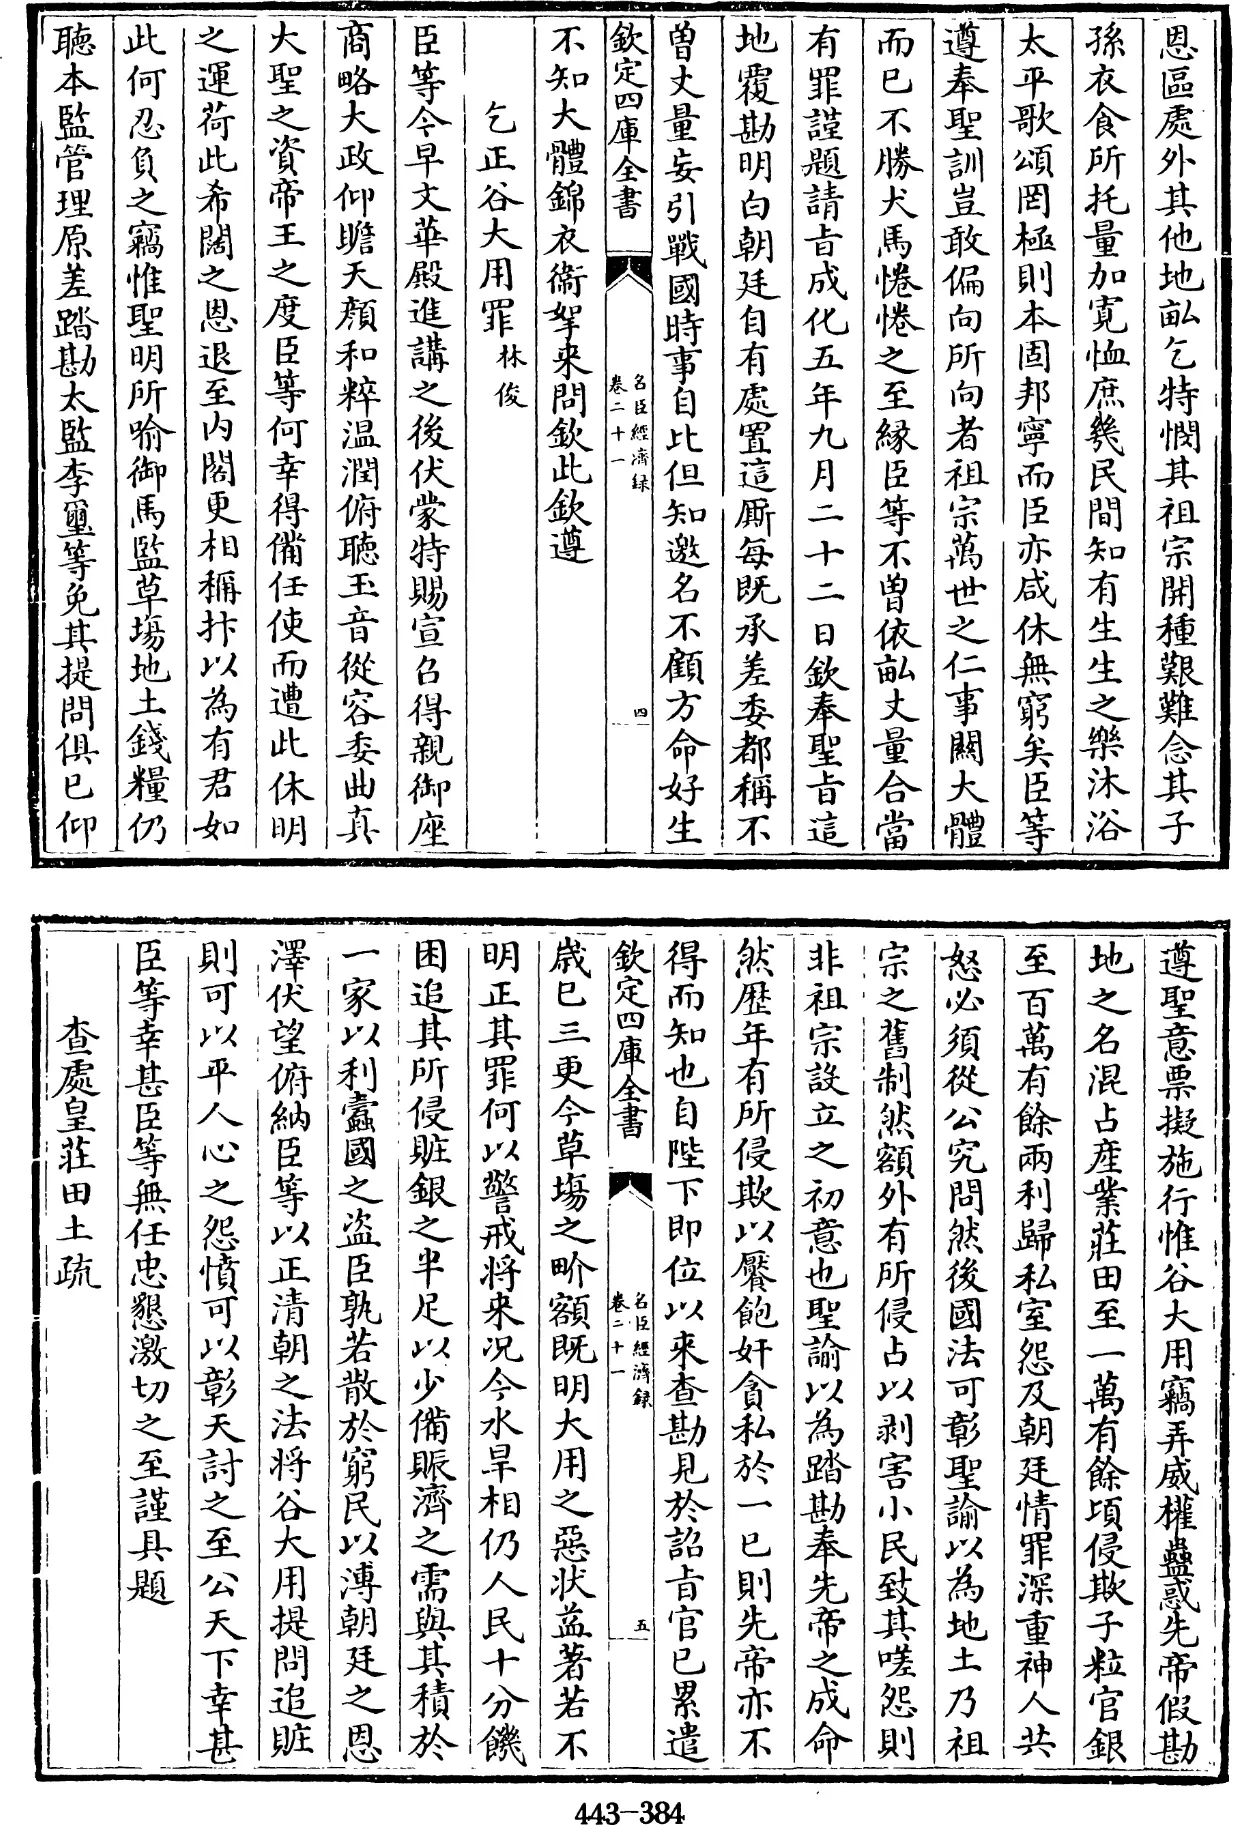 恩區處外其他地畝乞特憫其祖宗開種艱難念其子
孫衣食所托量加寛恤庶幾民間知有生生之樂沐浴
太平歌頌罔極則本固邦寧而臣亦咸休無窮矣臣等
遵奉聖訓豈敢偏向所向者祖宗萬世之仁事闗大體
而已不勝犬馬惓惓之至縁臣等不曽依畝丈量合當
有罪謹題請㫖成化五年九月二十二日欽奉聖㫖這
地覆勘明白朝廷自有處置這厮每既承差委都稱不
曽丈量妄引戰國時事自比但知邀名不顧方命好生
欽定四庫全書
名臣經濟録
卷二十一
四
不知大體錦衣衞拏来問欽此欽遵
乞正谷大用罪 林俊
臣等今早文華殿進講之後伏蒙特賜宣召得親御座
商略大政仰瞻天顔和粹温潤俯聴玉音從容委曲真
大聖之資帝王之度臣等何幸得備任使而遭此休明
之運荷此希闊之恩退至内閣更相稱抃以為有君如
此何忍負之竊惟聖明所喻御馬監草塲地土錢糧仍
聴本監管理原差踏勘太監李璽等免其提問俱已仰
遵聖意票擬施行惟谷大用竊弄威權蠱惑先帝假勘
地之名混占産業莊田至一萬有餘頃侵欺子粒官銀
至百萬有餘兩利歸私室怨及朝廷情罪深重神人共
怒必須從公究問然後國法可彰聖諭以為地土乃祖
宗之舊制然額外有所侵占以剥害小民致其嗟怨則
非祖宗設立之初意也聖諭以為踏勘奉先帝之成命
然歴年有所侵欺以饜飽奸貪私於一已則先帝亦不
得而知也自陛下即位以来查勘見於詔㫖官已累遣
欽定四庫全書
名臣經濟録
卷二十一
五
嵗已三更今草塲之畍額既明大用之惡状益著若不
明正其罪何以警戒将来况今水旱相仍人民十分饑
困追其所侵賍銀之半足以少備賑濟之需與其積於
一家以利蠹國之盗臣孰若散於窮民以溥朝廷之恩
澤伏望俯納臣等以正清朝之法将谷大用提問追賍
則可以平人心之怨憤可以彰天討之至公天下幸甚
臣等幸甚臣等無任忠懇激切之至謹具題
查處皇莊田土疏
443-384